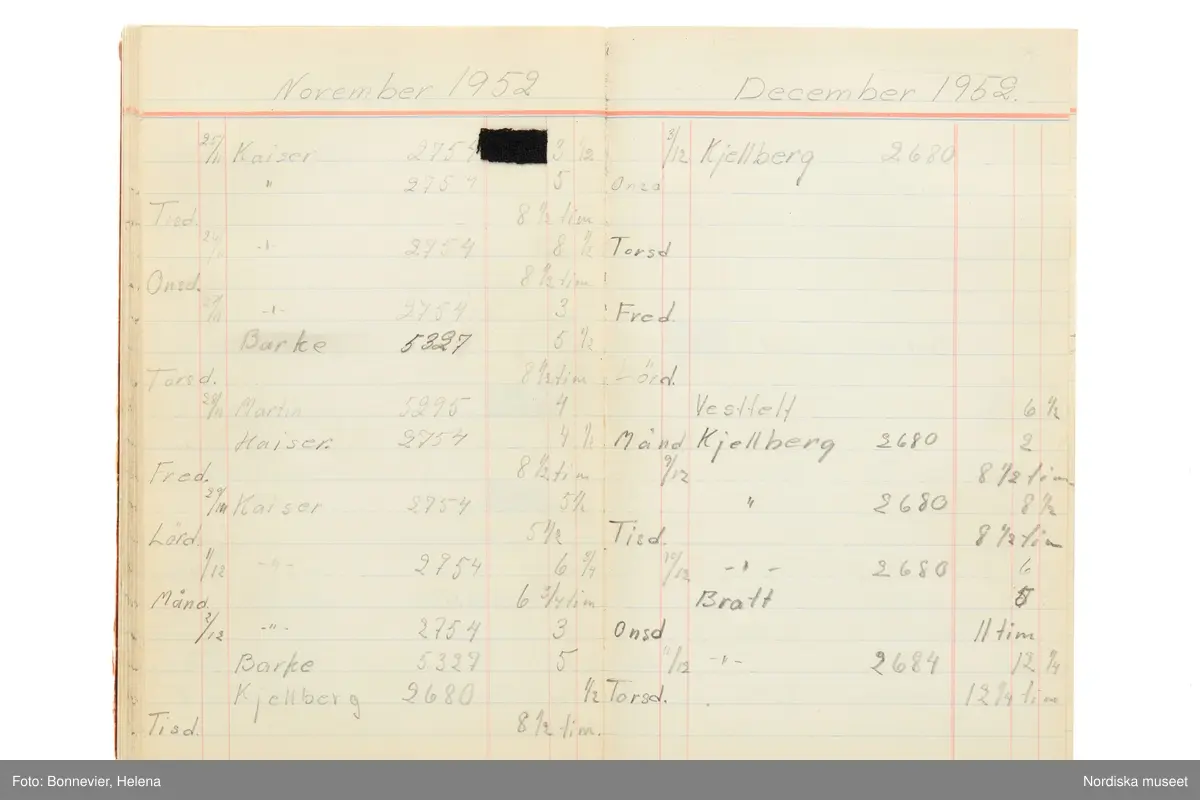 November 1952
25/11 Kaiser 2754 3 1/2
" 2754 5
Tisd. 8 1/2 tim
-"- 2754 8 1/2
Onsd. 8 1/2 tim
-"- 2754 3
Barke 5327 5 1/2
Torsd. 8 1/2 tim
28/11 Martin 5295 4
Kaiser. 2754 4 1/2
Fred. 8 1/2 tim
29/11 Kaiser 2754 5 1/2
Lörd. 5 1/2
1/12 -"- 2754 6 3/4
Månd. 6 3/4 tim
2/12 -"- 2754 3
Barke 5327 5
Kjellberg 2680 1/2
Tisd. 8 1/2 tim.
December 1952.
3/12 Kjellberg 2680
Onsd
Torsd
Fred.
Lörd.
Vesttelt 6 1/2
Månd Kjellberg 2680 2
9/12 8 1/2 tim
" 2680 8 1/2
Tisd. 8 1/2 tim
10/12 -"- 2680 6
Bratt 5
Onsd 11 tim
11/12 -"- 2684 12 1/4
Torsd. 12 1/4 tim
Foto: Bonnevier, Helena
Nordiska museet